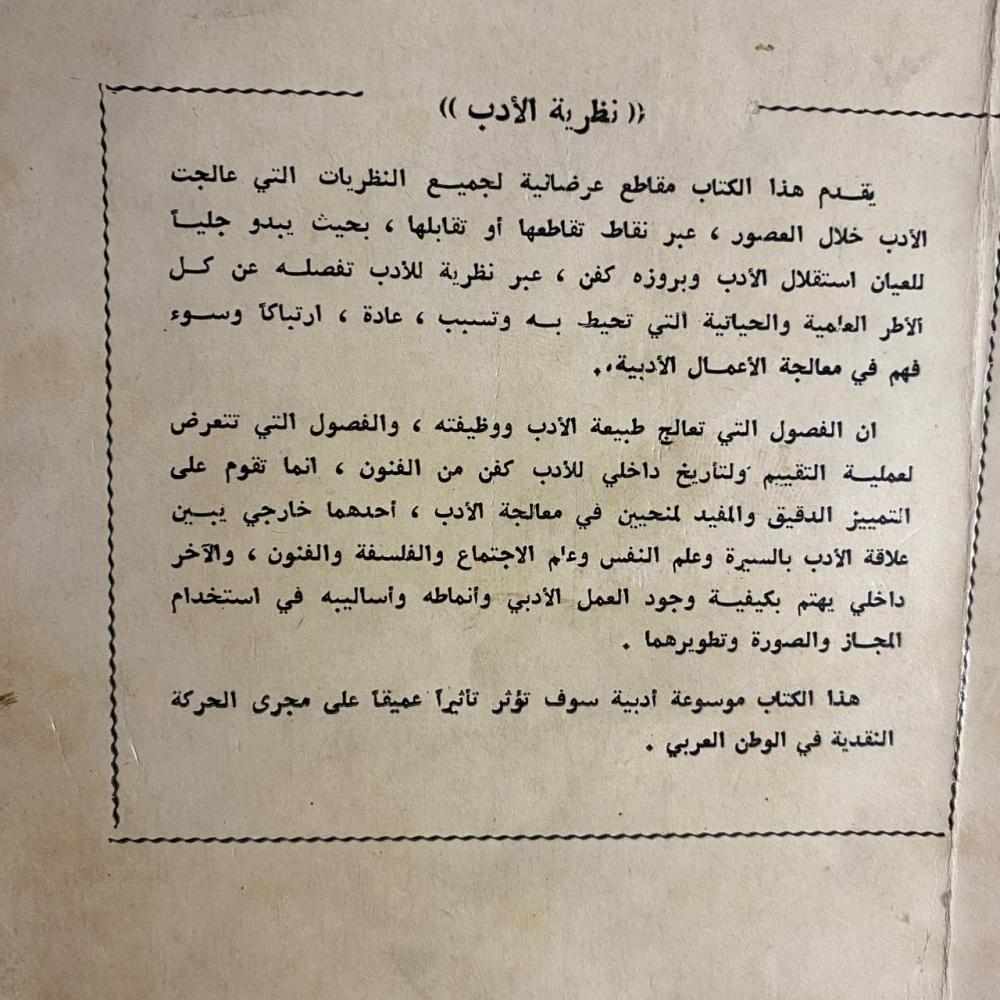 (( نظرية الأدب ))
يقدم هذا الكتاب مقاطع عرضانية لجميع النظريات التي عالجت
الأدب خلال العصور ، عبر نقاط تقاطعها أو تقابلها ، بحيث يبدو جلياً
للعيان استقلال الأدب وبروزه كفن ، عبر نظرية للأدب تفصله عن كل
الأطر العلمية والحياتية التي تحيط به وتسبب ، عادة ، ارتباكاً وسوء
فهم في معالجة الأعمال الأدبية..
ان الفصول التي تعالج طبيعة الأدب ووظيفته ، والفصول التي تتعرض
لعملية التقييم ولتأريخ داخلي للأدب كفن من الفنون ، انما تقوم على
التمييز الدقيق والمفيد لمنحيين في معالجة الأدب ، أحدهما خارجي يبين
علاقة الأدب بالسيرة وعلم النفس وعلم الاجتماع والفلسفة والفنون ، والآخر
داخلي يهتم بكيفية وجود العمل الأدبي وأنماطه وأساليبه في استخدام
المجاز والصورة وتطويرهما .
هذا الكتاب موسوعة أدبية سوف تؤثر تأثيراً عميقاً على مجرى الحركة
النقدية في الوطن العربي .